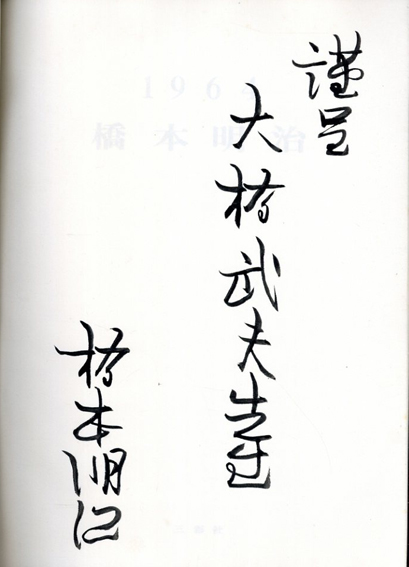 謹呈
大橋武夫先生
橋本明治
1964
橋本明治